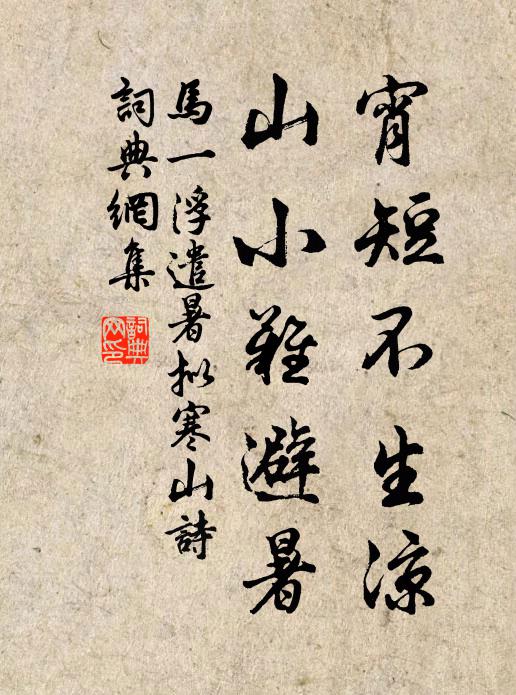 宵短不生涼
山小難避暑
馬一浮遣暑拟寒山詩
詞典網集
詞典網印